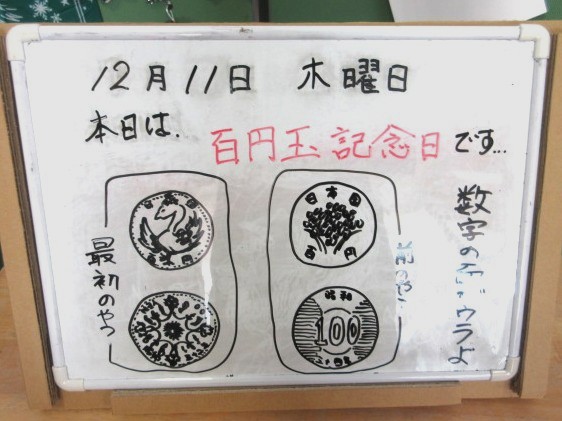 12月11日 木曜日
本日は、
百円玉記念日です...
最初のやつ
日本国
百円
日本国
百円
昭和
100
前のやつ
数字の方がウラよ